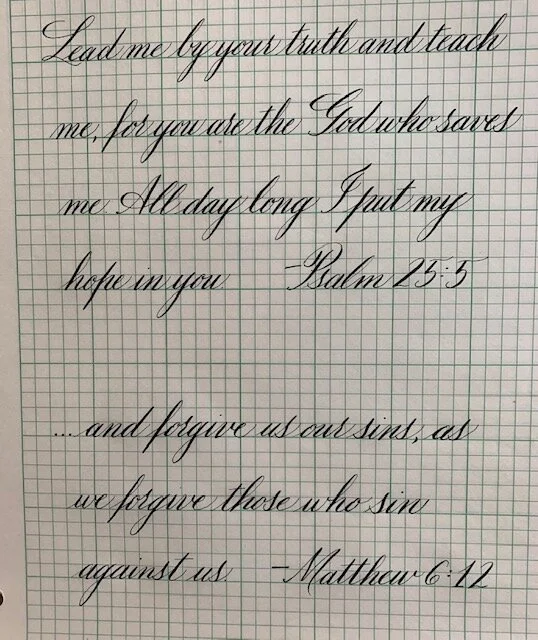 Lead me by your truth and teach
me, for you are the God who saves
me. All day long I put my
hope in you   -Psalm 25:5
...and forgive us our sins, as
we forgive those who sin
against us.   -Matthew 6:12